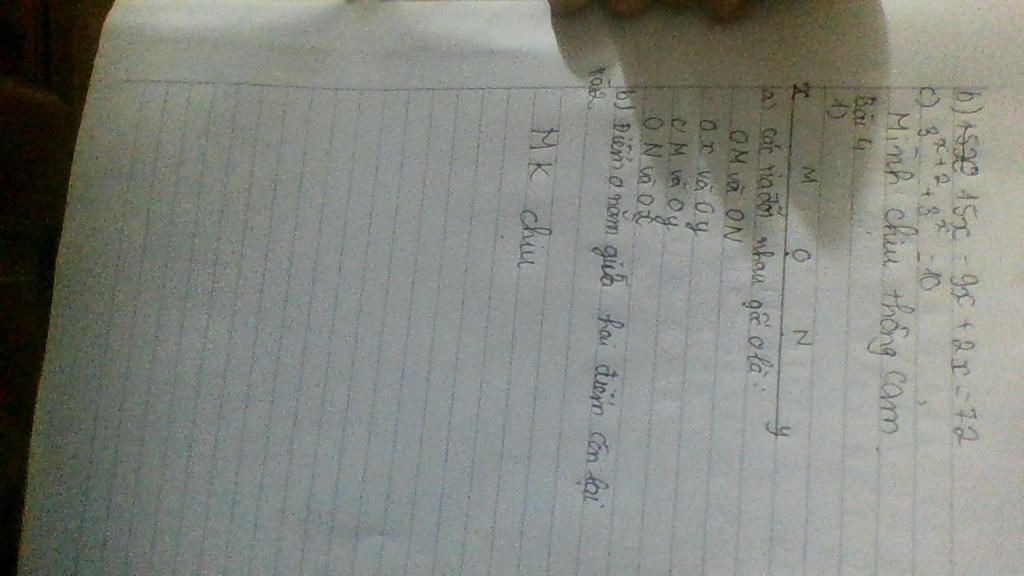 b) 15x - 9x + 2x = 72
c) 3^{x+2} + 3^x = 10
Mình chịu thông cảm
Bài 4
1)
x M O N y
a) các tia đối nhau gốc O là:
OM và ON
Ox và Oy
OM và Oy
ON và Ox
b) Điểm O nằm giữa hai điểm còn lại
MK chịu